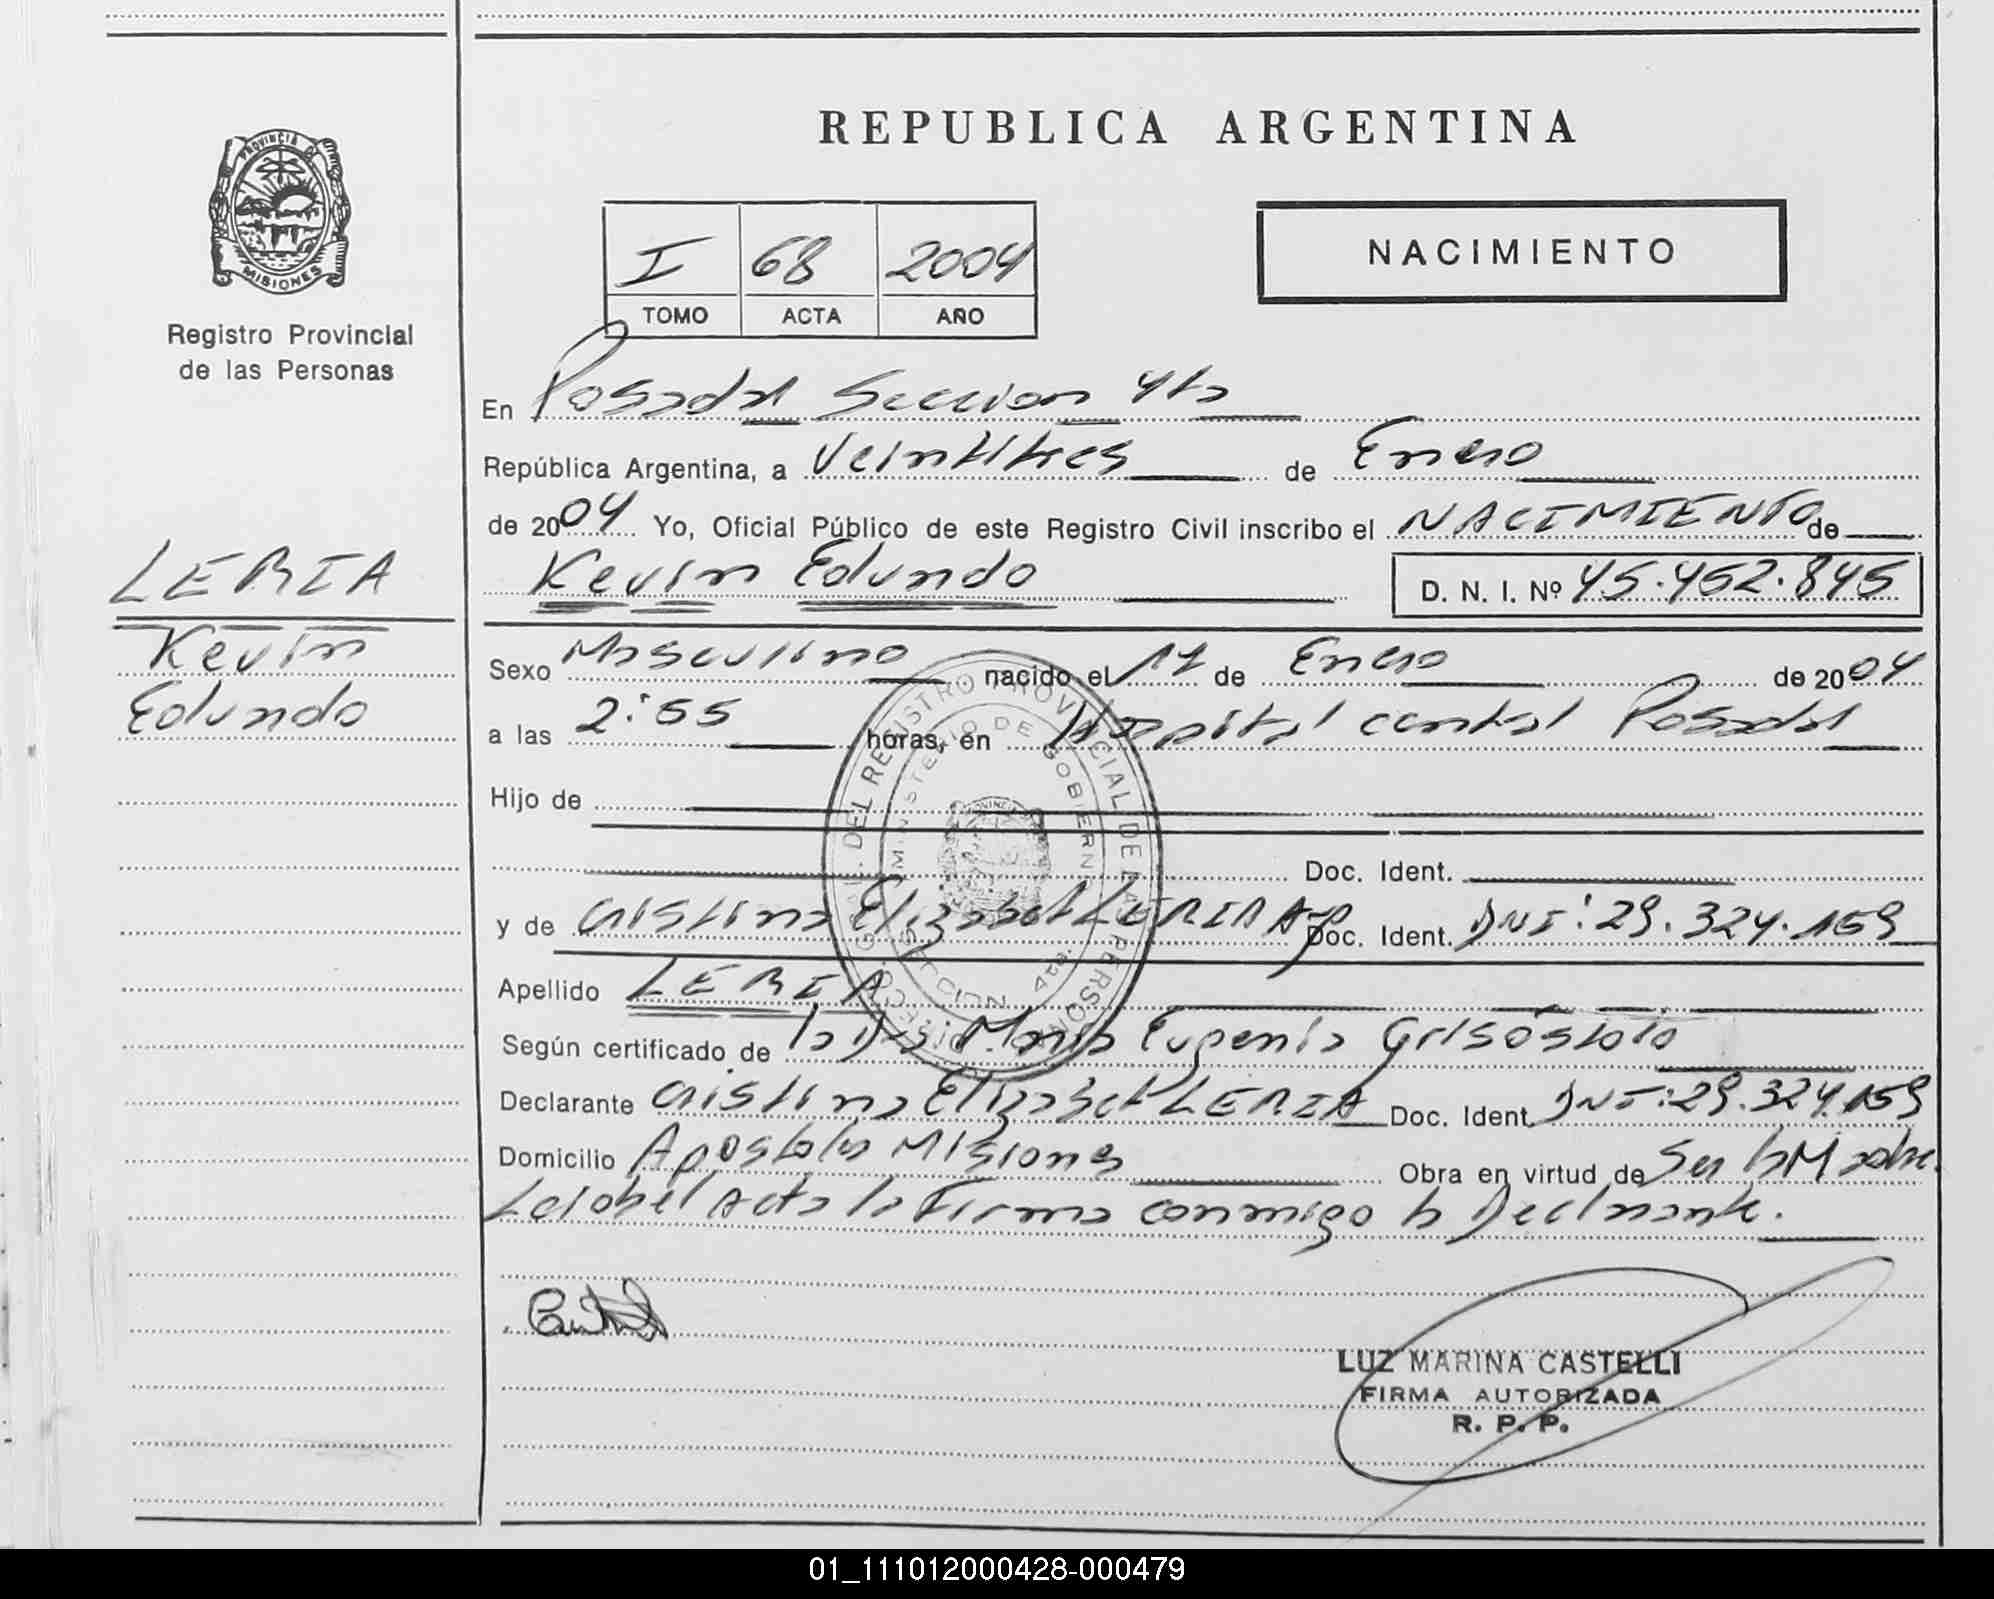 REPUBLICA ARGENTINA
PROVINCIA DE
MISIONES
Registro Provincial
de las Personas
I 68 2004
TOMO ACTA AÑO
NACIMIENTO
En Posadas Seccion 4ta
República Argentina, a Veintitres de Enero
de 2004 Yo, Oficial Público de este Registro Civil inscribo el NACIMIENTO de
Kevin Edundo D. N. I. Nº 45.452.845
LERIA
Kevin
Edundo
Sexo Masculino nacido el 17 de Enero de 2004
a las 2:55 horas, en Hospital central Posadas
Hijo de
Doc. Ident.
y de Cristina Elizabet LERIA Doc. Ident. DNI: 29.324.159
Apellido LERIA
Según certificado de la Dra. Maria Eugenia
Declarante Cristina Elizabet LERIA Doc. Ident. DNI: 29.324.159
Domicilio Apostoles Misiones Obra en virtud de Ser la Madre.
Leida el Acta la Firma conmigo la Declarante.
LUZ MARINA CASTELLI
FIRMA AUTORIZADA
R. P. P.
01_111012000428-000479